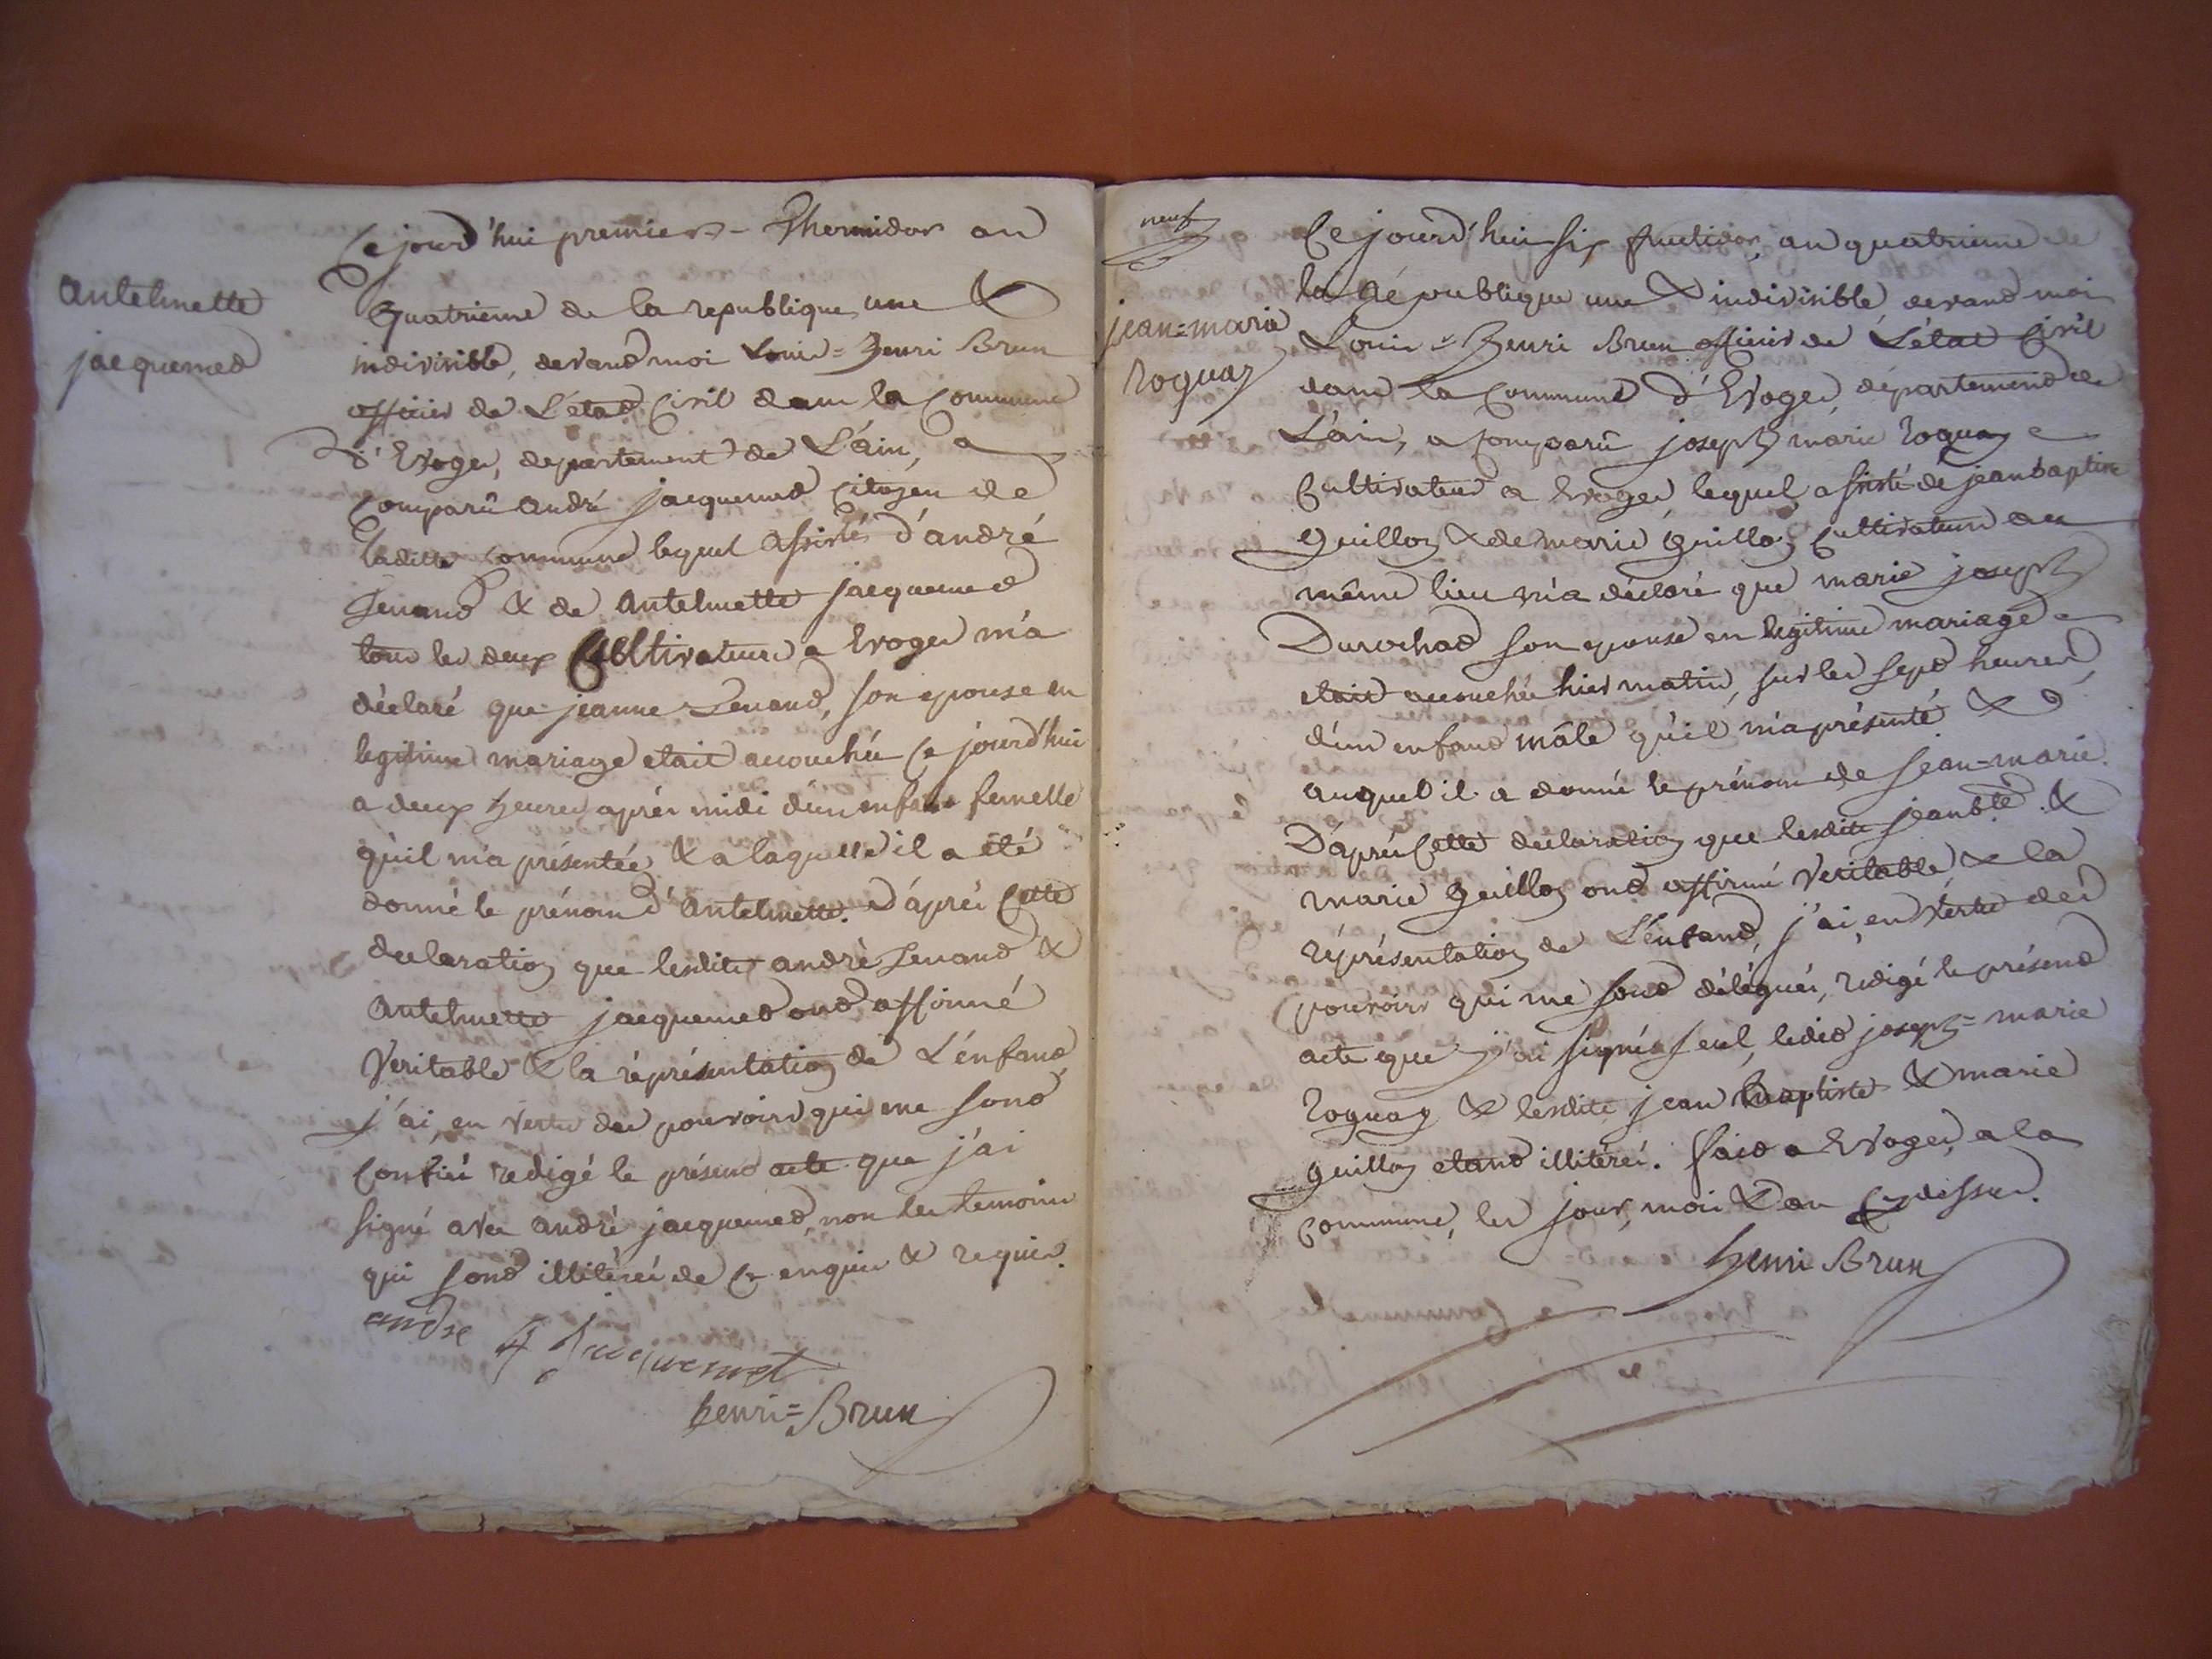 Antelmette
jacquemet
Ce jourd'hui premier - Thermidor an
quatrieme de la republique une &
indivisible, devant moi Louis=henri Brun
officier de L'état Civil dans la commune
d'Evoges, departement de L'ain, a
comparû andré jacquemet citoyen de
laditte commune lequel assisté d'andré
Lenand & de Antelmette jacquemet
tous les deux Cultivateurs a Evoges m'a
déclaré que jeanne Lenand, son epouse en
legitime mariage etait accouchée ce jourd'hui
a deux heures après midi d'un enfant femelle
qu'il m'a présentée & a laquelle il a été
donné le prénom d'Antelmette. d'après cette
declaration que lesdits andrè Lenand &
Antelmette jacquemet ont affirmé
Veritable & la réprésentation de L'enfant,
j'ai, en vertu des pouvoirs qui me sont
confiés redigé le présent acte que j'ai
signé avec andré jacquemet, non les temoins
qui sont illitérés de ce enquis & requis.
andre jacquemet
henri=Brun
neuf
jean=marie
Roguaz
Ce jourd'hui six fructidor, an quatrieme de
la République une & indivisible, devant moi
Louis=henri Brun officier de L'état Civil
dans la Commune d'Evoges, département de
L'ain, a comparû joseph marie Roguaz
Cultivateur a Evoges, lequel, assisté de jean baptiste
Guilloz & de marie guilloz Cultivateurs au
même lieu m'a déclaré que marie joseph
Durochat son epouse en legitime mariage
etait accouchée hier matin, sur les sept heures,
d'un enfant mâle qu'il m'a présenté &
auquel il a donné le prénom de jean=marie.
D'après Cette declaration que lesdits jean bte. &
marie Guilloz ont affirmé Veritable & la
réprésentation de L'enfant, j'ai, en vertu des
pouvoirs qui me sont délégués, redigé le présent
acte que j'ai signé seul, ledit joseph=marie
Roguaz & lesdits jean baptiste & marie
guilloz etant illitérés. fait a Evoges, a la
commune, les jour, mois & an Cydessus.
henri Brun